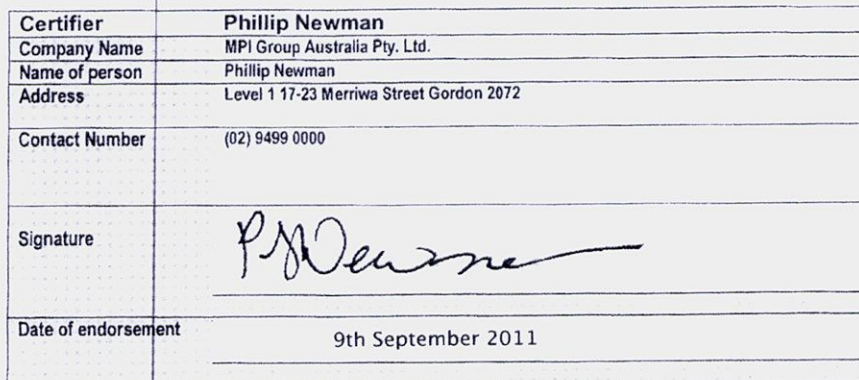 Certifier Phillip Newman
Company Name MPI Group Australia Pty. Ltd.
Name of person Phillip Newman
Address Level 1 17-23 Merriwa Street Gordon 2072
Contact Number (02) 9499 0000
Signature PJNewman
Date of endorsement 9th September 2011